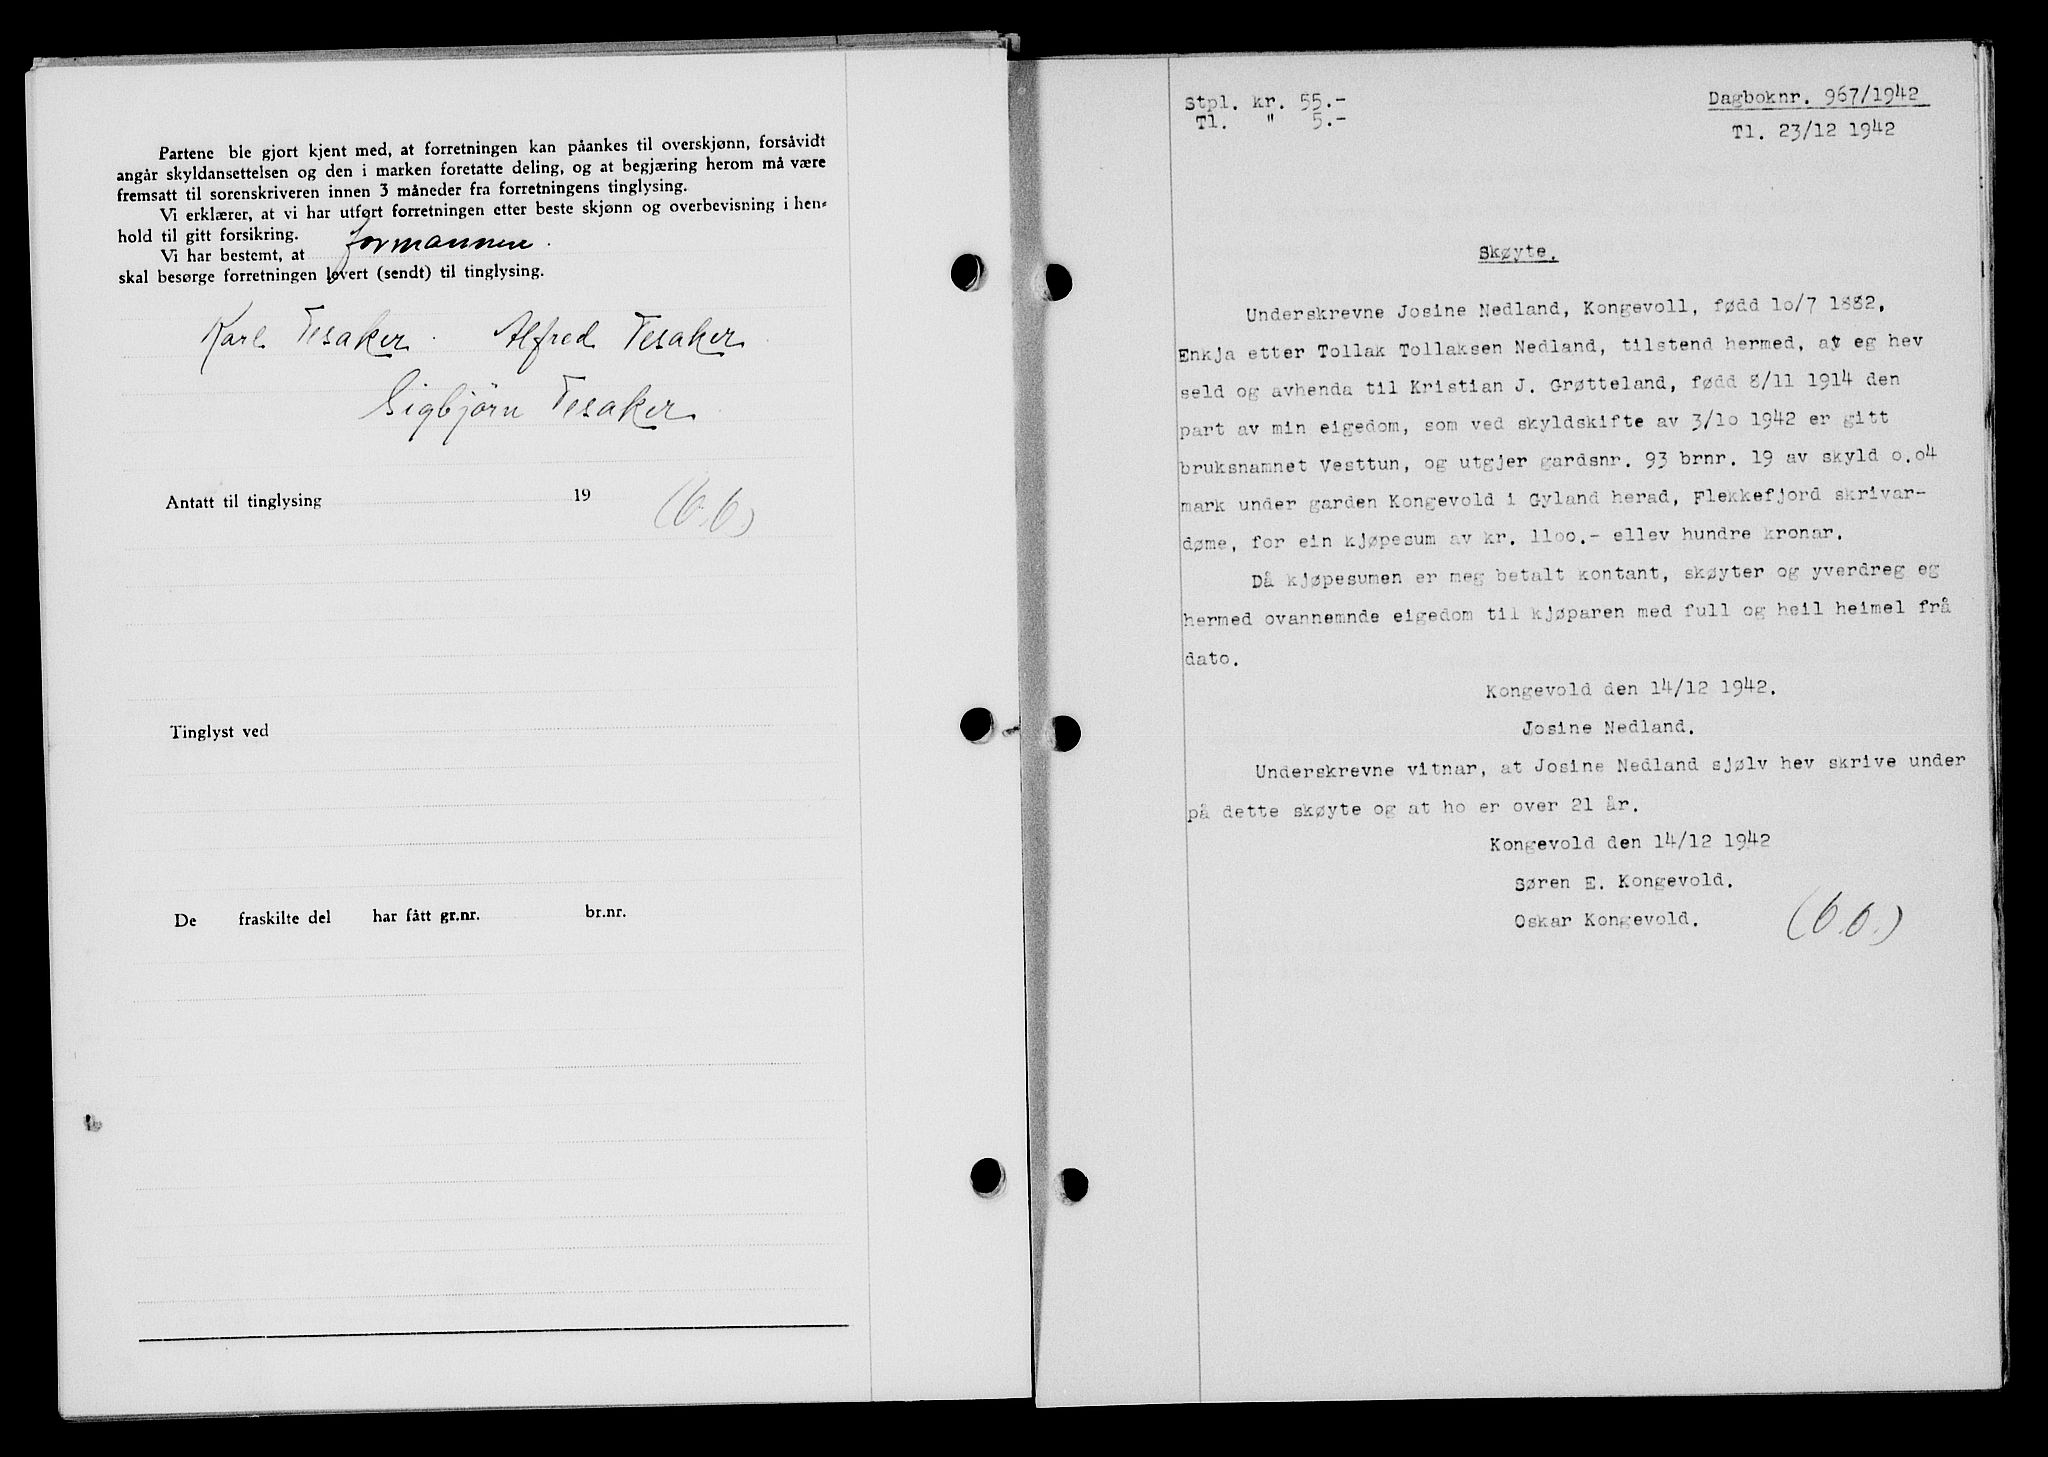 Partene ble gjort kjent med, at forretningen kan påankes til overskjønn, forsåvidt
angår skyldansettelsen og den i marken foretatte deling, og at begjæring herom må være
fremsatt til sorenskriveren innen 3 måneder fra forretningens tinglysing.
Vi erklærer, at vi har utført forretningen etter beste skjønn og overbevisning i hen-
hold til gitt forsikring.
Vi har bestemt, at formannen.
skal besørge forretningen levert (sendt) til tinglysing.
Karl Tesaker. Alfred Tesaker.
Sigbjörn Tesaker.
Antatt til tinglysing 19
Tinglyst ved
De fraskilte del har fått gr.nr. br.nr.
Stpl. kr. 55.-
Tl. " 5.-
Dagboknr. 967/1942
Tl. 23/12 1942
Skøyte.
Underskrevne Josine Nedland, Kongevoll, fødd 10/7 1882,
Enkja etter Tollak Tollaksen Nedland, tilstend hermed, at eg hev
seld og avhenda til Kristian J. Grøtteland, fødd 8/11 1914 den
part av min eigedom, som ved skyldskifte av 3/10 1942 er gitt
bruksnamnet Vesttun, og utgjer gardsnr. 93 brnr. 19 av skyld 0.04
mark under garden Kongevold i Gyland herad, Flekkefjord skrivar-
døme, for ein kjøpesum av kr. 1100.- ellev hundre kronar.
Då kjøpesumen er meg betalt kontant, skøyter og yverdreg eg
hermed ovannemnde eigedom til kjøparen med full og heil heimel frå
dato.
Kongevold den 14/12 1942.
Josine Nedland.
Underskrevne vitnar, at Josine Nedland sjølv hev skrive under
på dette skøyte og at ho er over 21 år.
Kongevold den 14/12 1942
Søren E. Kongevold.
Oskar Kongevold.